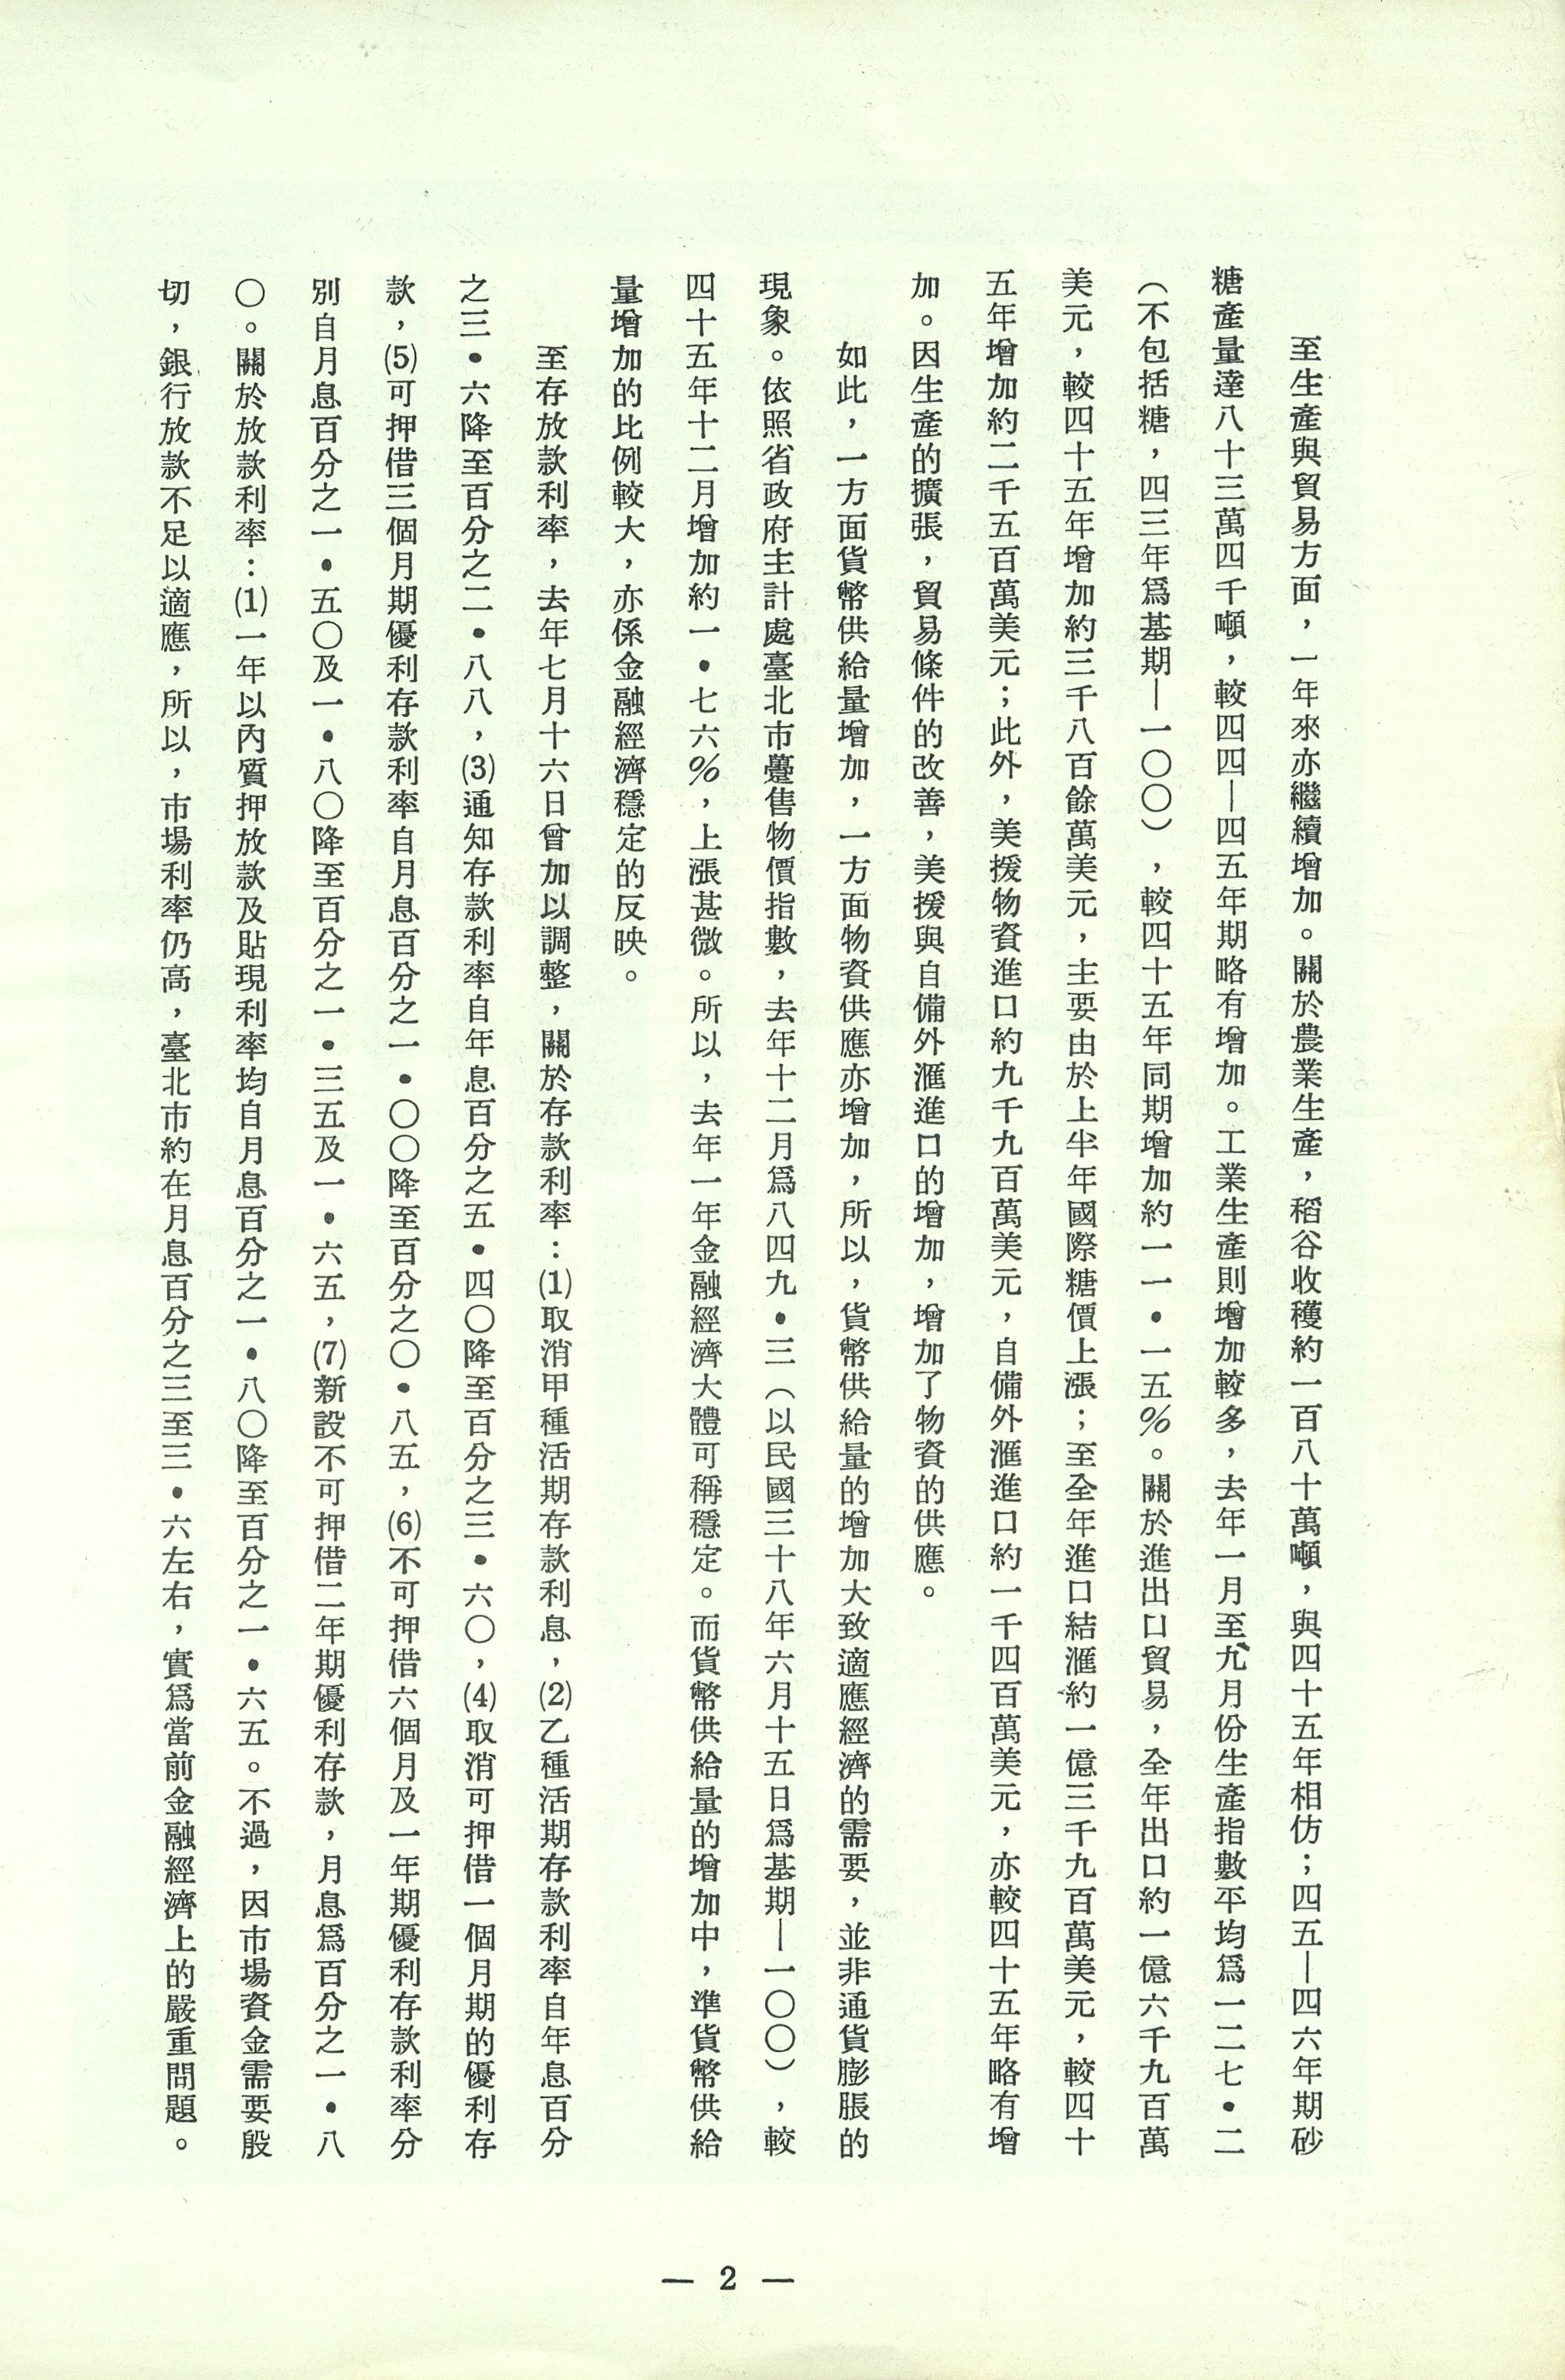 至生產與貿易方面，一年來亦繼續增加。關於農業生產，稻谷收穫約一百八十萬噸，與四十五年相仿；四五—四六年期砂
糖產量達八十三萬四千噸，較四四—四五年期略有增加。工業生產則增加較多，去年一月至九月份生產指數平均爲一二七•二
（不包括糖，四三年爲基期—一〇〇），較四十五年同期增加約一一•一五%。關於進出口貿易，全年出口約一億六千九百萬
美元，較四十五年增加約三千八百餘萬美元，主要由於上半年國際糖價上漲；至全年進口結滙約一億三千九百萬美元，較四十
五年增加約二千五百萬美元；此外，美援物資進口約九千九百萬美元，自備外滙進口約一千四百萬美元，亦較四十五年略有增
加。因生產的擴張，貿易條件的改善，美援與自備外滙進口的增加，增加了物資的供應。
如此，一方面貨幣供給量增加，一方面物資供應亦增加，所以，貨幣供給量的增加大致適應經濟的需要，並非通貨膨脹的
現象。依照省政府主計處臺北市躉售物價指數，去年十二月爲八四九•三（以民國三十八年六月十五日爲基期—一〇〇），較
四十五年十二月增加約一•七六%，上漲甚微。所以，去年一年金融經濟大體可稱穩定。而貨幣供給量的增加中，準貨幣供給
量增加的比例較大，亦係金融經濟穩定的反映。
至存放款利率，去年七月十六日曾加以調整，關於存款利率：(1)取消甲種活期存款利息，(2)乙種活期存款利率自年息百分
之三•六降至百分之二•八八，(3)通知存款利率自年息百分之五•四〇降至百分之三•六〇，(4)取消可押借一個月期的優利存
款，(5)可押借三個月期優利存款利率自月息百分之一•〇〇降至百分之〇•八五，(6)不可押借六個月及一年期優利存款利率分
別自月息百分之一•五〇及一•八〇降至百分之一•三五及一•六五，(7)新設不可押借二年期優利存款，月息爲百分之一•八
〇。關於放款利率：(1)一年以內質押放款及貼現利率均自月息百分之一•八〇降至百分之一•六五。不過，因市場資金需要殷
切，銀行放款不足以適應，所以，市場利率仍高，臺北市約在月息百分之三至三•六左右，實爲當前金融經濟上的嚴重問題。
— 2 —